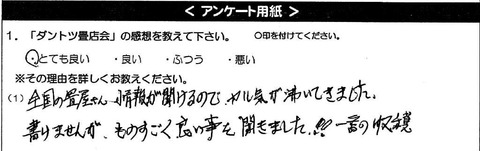 ＜ アンケート用紙 ＞
1．「ダントツ畳店会」の感想を教えて下さい。　○印を付けてください。
・とても良い　・良い　・ふつう　・悪い
※その理由を詳しくお教えください。
(1) 全国の畳屋さん 情報が聞けるので、ヤル気が沸いてきました。
書けませんが、ものすごく良い事を聞きました!!! 一番の収穫